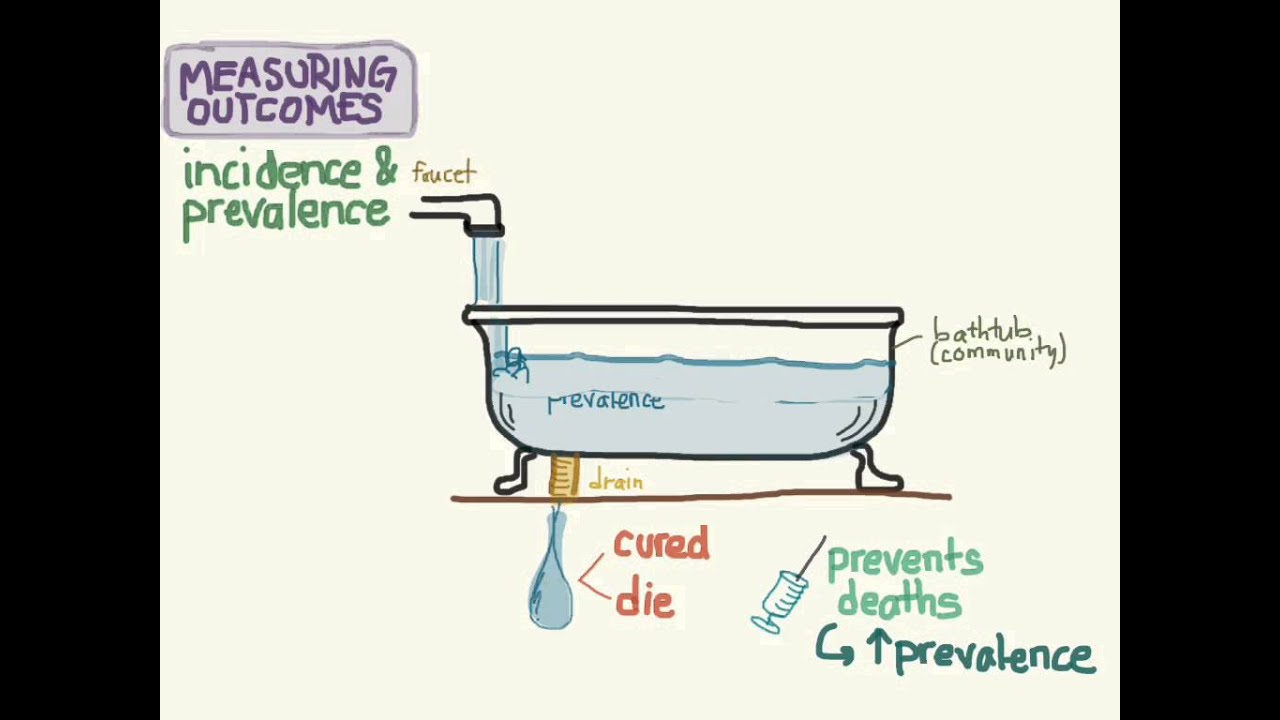 MEASURING
OUTCOMES
incidence &
prevalence
faucet
bathtub
(community)
prevalence
drain
cured
die
prevents
deaths
↳ ↑ prevalence